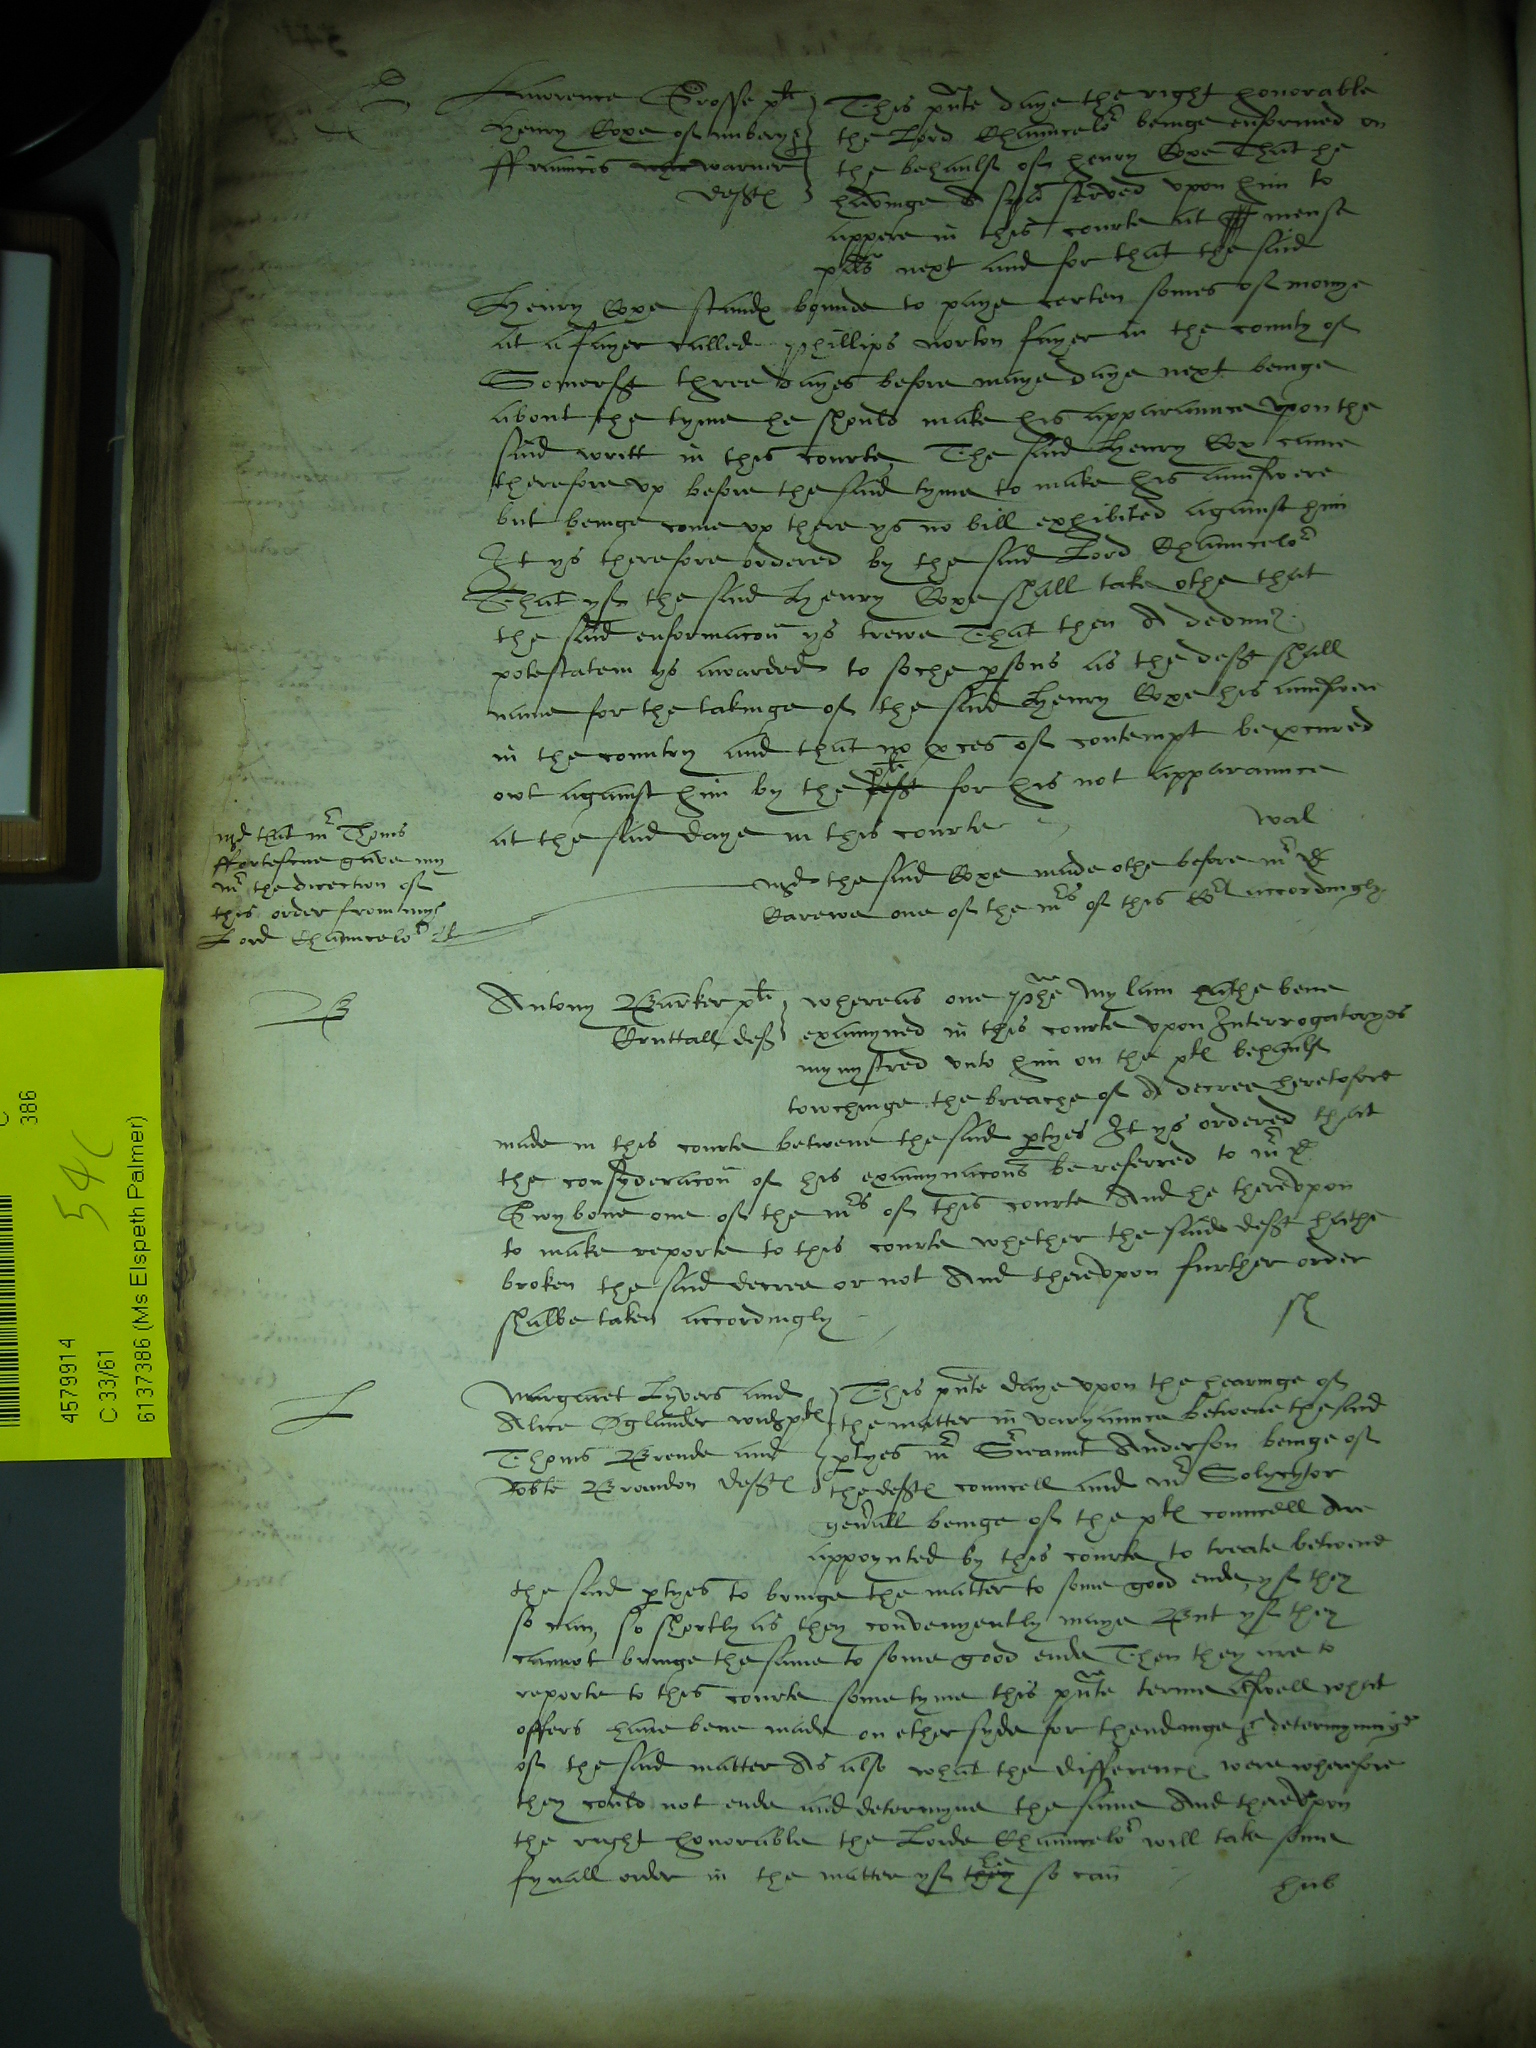 Lawrence Grosse plt
Henry Coxe of
ffrauncis warner
defts
This pnte daye the right honorable
the Lord Chauncelor beinge enformed on
the behaulf of henry Coxe That he
havinge A spa served vpon him to
appere in this courte at mense
pasce next and for that the said
Henry Coxe stands bounde to paye certen somes of monye
at a fayer called Phillips norton fayer in the county of
Somerset three dayes before maye daye next beinge
about the tyme he should make his apparaunce vpon the
said writt in this courte The said Henry Cox came
therefore vp before the said tyme to make his aunswere
but beinge come vp there ys no bill exhibited against him
It ys therefore ordered by the said Lord Chauncelor
That yf the said Henry Coxe shall take othe that
the said enformacon ys trewe That then A dedimus
potestatem ys awarded to soche psons as the deft shall
name for the takinge of the said Henry Coxe his aunswer
in the country and that no pces of contempt be pcured
owt against him by the plt for his not apparaunce
at the said daye in this courte
wal
md that mr Thoms
ffortescue gave my
mr the direction of
this order from my
Lord Chauncelor
md the said Coxe made othe before mr D
Carewe one of the mrs of this Cort accordingly
B
Antony Barker plt
Cruttall deft
whereas one Phe Mylam hathe bene
examyned in this courte vpon Interrogatoryes
mynystred vnto him on the plts behaulf
towchinge the breache of A decree heretofore
made in this courte betwene the said ptyes It ys ordered that
the consyderacon of his examynacons be referred to mr D
Gwybone one of the mrs of this courte And he therevpon
to make reporte to this courte whether the said deft hathe
broken the said decree or not And therevpon further order
shalbe taken accordingly
sh
L
Margaret Lyvers and
Alice Oglander wid plts
Thoms Brende and
Robte Brandon defts
This pnte daye vpon the hearinge of
the matter in varyaunce betwene the said
ptyes mr Sreaunt Anderson beinge of
the defts councell and mr Solycytor
genrall beinge of the plts councell Are
appoynted by this courte to treate betwene
the said ptyes to bringe the matter to some good ende yf they
so can, so shortly as they convenyently maye But yf they
cannot bringe the same to some good ende Then they are to
reporte to this courte some tyme this pnte terme aswell what
offers have bene made on ether syde for thendinge & determyninge
of the said matter As also what the differences were wherefore
they could not ende and determyne the same And therevpon
the right honorable the Lorde Chauncelor will take some
fynall order in the matter yf they he so can
hub
386
54
4579914
C 33/61
6137386 (Ms Elspeth Palmer)